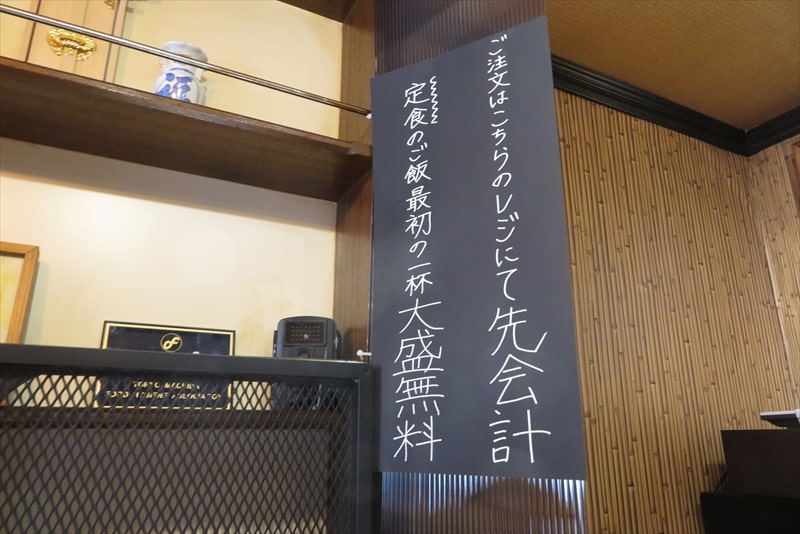 ご注文はこちらのレジにて先会計
定食のご飯最初の一杯大盛無料